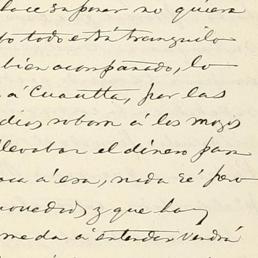 hace suponer no quiera
todo está tranquilo
bien acompañado, lo
a Cuautla, por las
dias roban á los mozos
llevaban el dinero para
á esa, nada sé pero
y que hay
me da á entender vendrá